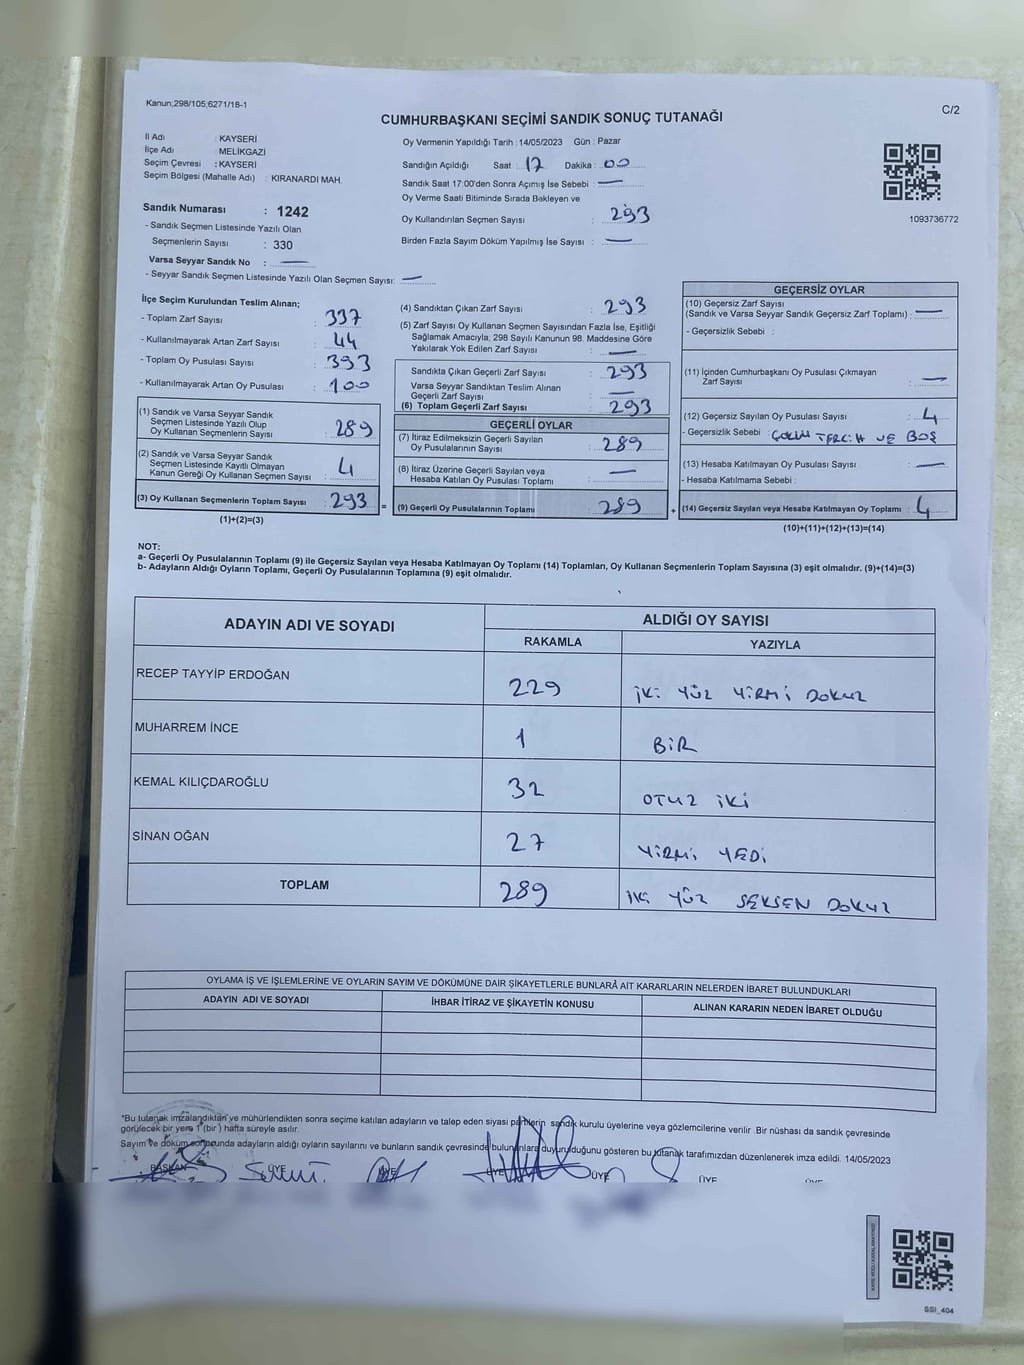 Kanun;298/105;6271/18-1
C/2
CUMHURBAŞKANI SEÇİMİ SANDIK SONUÇ TUTANAĞI
İl Adı : KAYSERİ
İlçe Adı : MELİKGAZİ
Seçim Çevresi : KAYSERİ
Seçim Bölgesi (Mahalle Adı) : KIRANARDI MAH.
Sandık Numarası : 1242
- Sandık Seçmen Listesinde Yazılı Olan
Seçmenlerin Sayısı : 330
Varsa Seyyar Sandık No : —
- Seyyar Sandık Seçmen Listesinde Yazılı Olan Seçmen Sayısı: —
Oy Vermenin Yapıldığı Tarih : 14/05/2023 Gün : Pazar
Sandığın Açıldığı Saat : 17 Dakika : 00
Sandık Saat 17:00'den Sonra Açımış İse Sebebi : —
Oy Verme Saati Bitiminde Sırada Bekleyen ve
Oy Kullandırılan Seçmen Sayısı : 293
Birden Fazla Sayım Döküm Yapılmış İse Sayısı : —
1093736772
İlçe Seçim Kurulundan Teslim Alınan;
- Toplam Zarf Sayısı : 337
- Kullanılmayarak Artan Zarf Sayısı : 44
- Toplam Oy Pusulası Sayısı : 393
- Kullanılmayarak Artan Oy Pusulası : 100
(1) Sandık ve Varsa Seyyar Sandık
Seçmen Listesinde Yazılı Olup
Oy Kullanan Seçmenlerin Sayısı : 289
(2) Sandık ve Varsa Seyyar Sandık
Seçmen Listesinde Kayıtlı Olmayan
Kanun Gereği Oy Kullanan Seçmen Sayısı : 4
(3) Oy Kullanan Seçmenlerin Toplam Sayısı : 293
(1)+(2)=(3)
(4) Sandıktan Çıkan Zarf Sayısı : 293
(5) Zarf Sayısı Oy Kullanan Seçmen Sayısından Fazla İse, Eşitliği
Sağlamak Amacıyla; 298 Sayılı Kanunun 98. Maddesine Göre
Yakılarak Yok Edilen Zarf Sayısı : —
Sandıkta Çıkan Geçerli Zarf Sayısı : 293
Varsa Seyyar Sandıktan Teslim Alınan
Geçerli Zarf Sayısı : —
(6) Toplam Geçerli Zarf Sayısı : 293
GEÇERLİ OYLAR
(7) İtiraz Edilmeksizin Geçerli Sayılan
Oy Pusulalarının Sayısı : 289
(8) İtiraz Üzerine Geçerli Sayılan veya
Hesaba Katılan Oy Pusulası Toplamı : —
= (9) Geçerli Oy Pusulalarının Toplamı : 289
GEÇERSİZ OYLAR
(10) Geçersiz Zarf Sayısı
(Sandık ve Varsa Seyyar Sandık Geçersiz Zarf Toplamı) : —
- Geçersizlik Sebebi :
(11) İçinden Cumhurbaşkanı Oy Pusulası Çıkmayan
Zarf Sayısı : —
(12) Geçersiz Sayılan Oy Pusulası Sayısı : 4
- Geçersizlik Sebebi : ÇOKLU TERCİH VE BOŞ
(13) Hesaba Katılmayan Oy Pusulası Sayısı : —
- Hesaba Katılmama Sebebi :
+ (14) Geçersiz Sayılan veya Hesaba Katılmayan Oy Toplamı : 4
(10)+(11)+(12)+(13)=(14)
NOT:
a- Geçerli Oy Pusulalarının Toplamı (9) ile Geçersiz Sayılan veya Hesaba Katılmayan Oy Toplamı (14) Toplamları, Oy Kullanan Seçmenlerin Toplam Sayısına (3) eşit olmalıdır. (9)+(14)=(3)
b- Adayların Aldığı Oyların Toplamı, Geçerli Oy Pusulalarının Toplamına (9) eşit olmalıdır.
ADAYIN ADI VE SOYADI
ALDIĞI OY SAYISI
RAKAMLA YAZIYLA
RECEP TAYYİP ERDOĞAN 229 İKİ YÜZ YİRMİ DOKUZ
MUHARREM İNCE 1 BİR
KEMAL KILIÇDAROĞLU 32 OTUZ İKİ
SİNAN OĞAN 27 YİRMİ YEDİ
TOPLAM 289 İKİ YÜZ SEKSEN DOKUZ
OYLAMA İŞ VE İŞLEMLERİNE VE OYLARIN SAYIM VE DÖKÜMÜNE DAİR ŞİKAYETLERLE BUNLARA AİT KARARLARIN NELERDEN İBARET BULUNDUKLARI
ADAYIN ADI VE SOYADI İHBAR İTİRAZ VE ŞİKAYETİN KONUSU ALINAN KARARIN NEDEN İBARET OLDUĞU
*Bu tutanak imzalandıktan ve mühürlendikten sonra seçime katılan adayların ve talep eden siyasi partilerin sandık kurulu üyelerine veya gözlemcilerine verilir. Bir nüshası da sandık çevresinde
görülecek bir yere 1 (bir) hafta süreyle asılır.
Sayım ve döküm sonucunda adayların aldığı oyların sayılarını ve bunların sandık çevresinde bulunanlara duyurulduğunu gösteren bu tutanak tarafımızdan düzenlenerek imza edildi. 14/05/2023
BAŞKAN ÜYE ÜYE ÜYE ÜYE ÜYE ÜYE
SSI_404